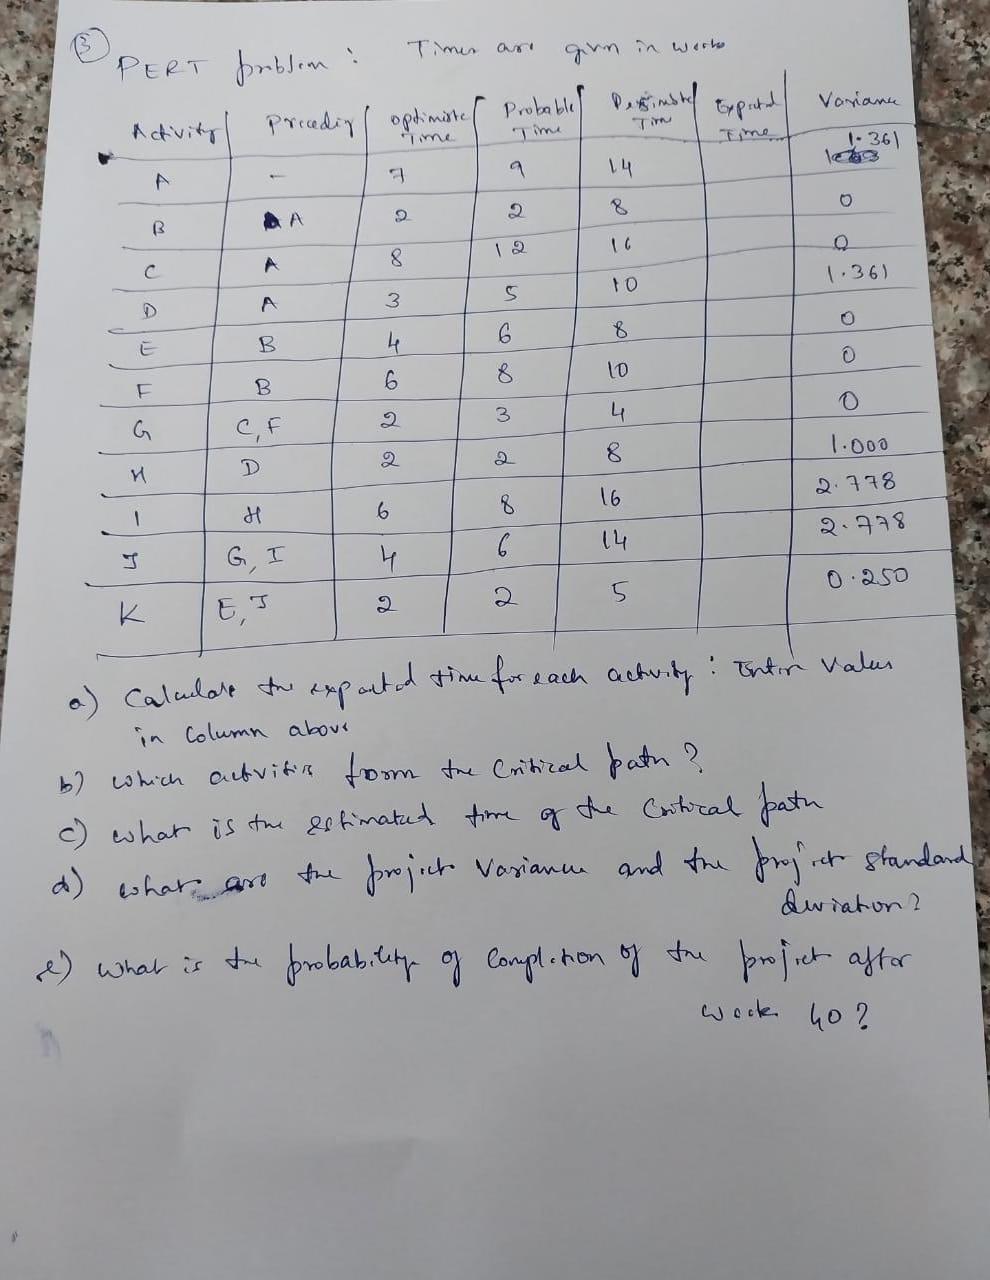 3
PERT problem : Times are givn in weeks
Activity Precedig optimiste Time Probable Time Pessimstc Time Expectd Time Variance
A - 7 9 14 1.361
B A 2 2 8 0
C A 8 12 16 0
D A 3 5 10 1.361
E B 4 6 8 0
F B 6 8 10 0
G C, F 2 3 4 0
H D 2 2 8 1.000
I H 6 8 16 2.778
J G, I 4 6 14 2.778
K E, J 2 2 5 0.250
a) Calculate the expected time for each activity : Enter Values
in Column above
b) which activities from the Critical path ?
c) what is the estimated time of the Critical path
d) what are the project Variance and the project standard
deviation ?
e) what is the probability of Completion of the project after
week 40 ?